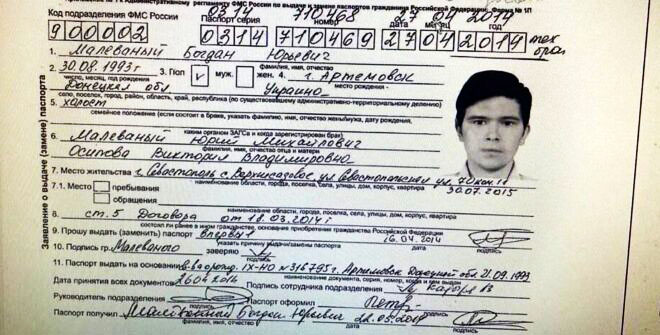 административному регламенту ФМС России по выдаче и замене паспортов гражданина Российской Федерации, Форма № 1П
0314 710468 27 04 2014
Код подразделения ФМС России Паспорт серия номер число месяц год
900002 0314 710469 27 04 2014
1. Малеваный Богдан Юрьевич
фамилия, имя, отчество
2. 30.08.1993г 3. Пол v муж. жен. 4. г. Артемовск
число, месяц, год рождения место рождения -
Донецкая обл Украина
село, поселок, город, район, область, край, республика (по существовавшему административно-территориальному делению)
5. холост
семейное положение (если состоит в браке, указать фамилию, имя, отчество жены/мужа, дату рождения,
каким органом ЗАГСа и когда зарегистрирован брак)
6. Малеваный Юрий Михайлович
фамилия, имя, отчество отца и матери
Осипова Виктория Владимировна
7. Место жительства г. Севастополь
наименование области, города, поселка, села, улицы, дом, корпус, квартира
7.1. Место пребывания 30.07.2015
обращения
наименование области, города, поселка, села, улицы, дом, корпус, квартира
8. ст. 5 Договора от 18.03.2014г
состоял ли ранее в ином гражданстве, основания приобретения гражданства Российской Федерации
9. Прошу выдать (заменить) паспорт впервый 26.04.2014
указать причину выдачи/замены паспорта подпись
10. Подпись гр. Малеваного заверяю
11. Паспорт выдать на основании IX-НО № 316795 г. Артемовск Донецкой обл 21.09.1993
наименование документа, серия, номер, когда и кем выдан
Дата принятия всех документов 26 04 2014 Подпись сотрудника подразделения
Руководитель подразделения Паспорт оформил
подпись
Паспорт получил Малеваный Богдан Юрьевич 22.05.2014
фамилия, имя, отчество подпись
Заявление о выдаче (замене) паспорта